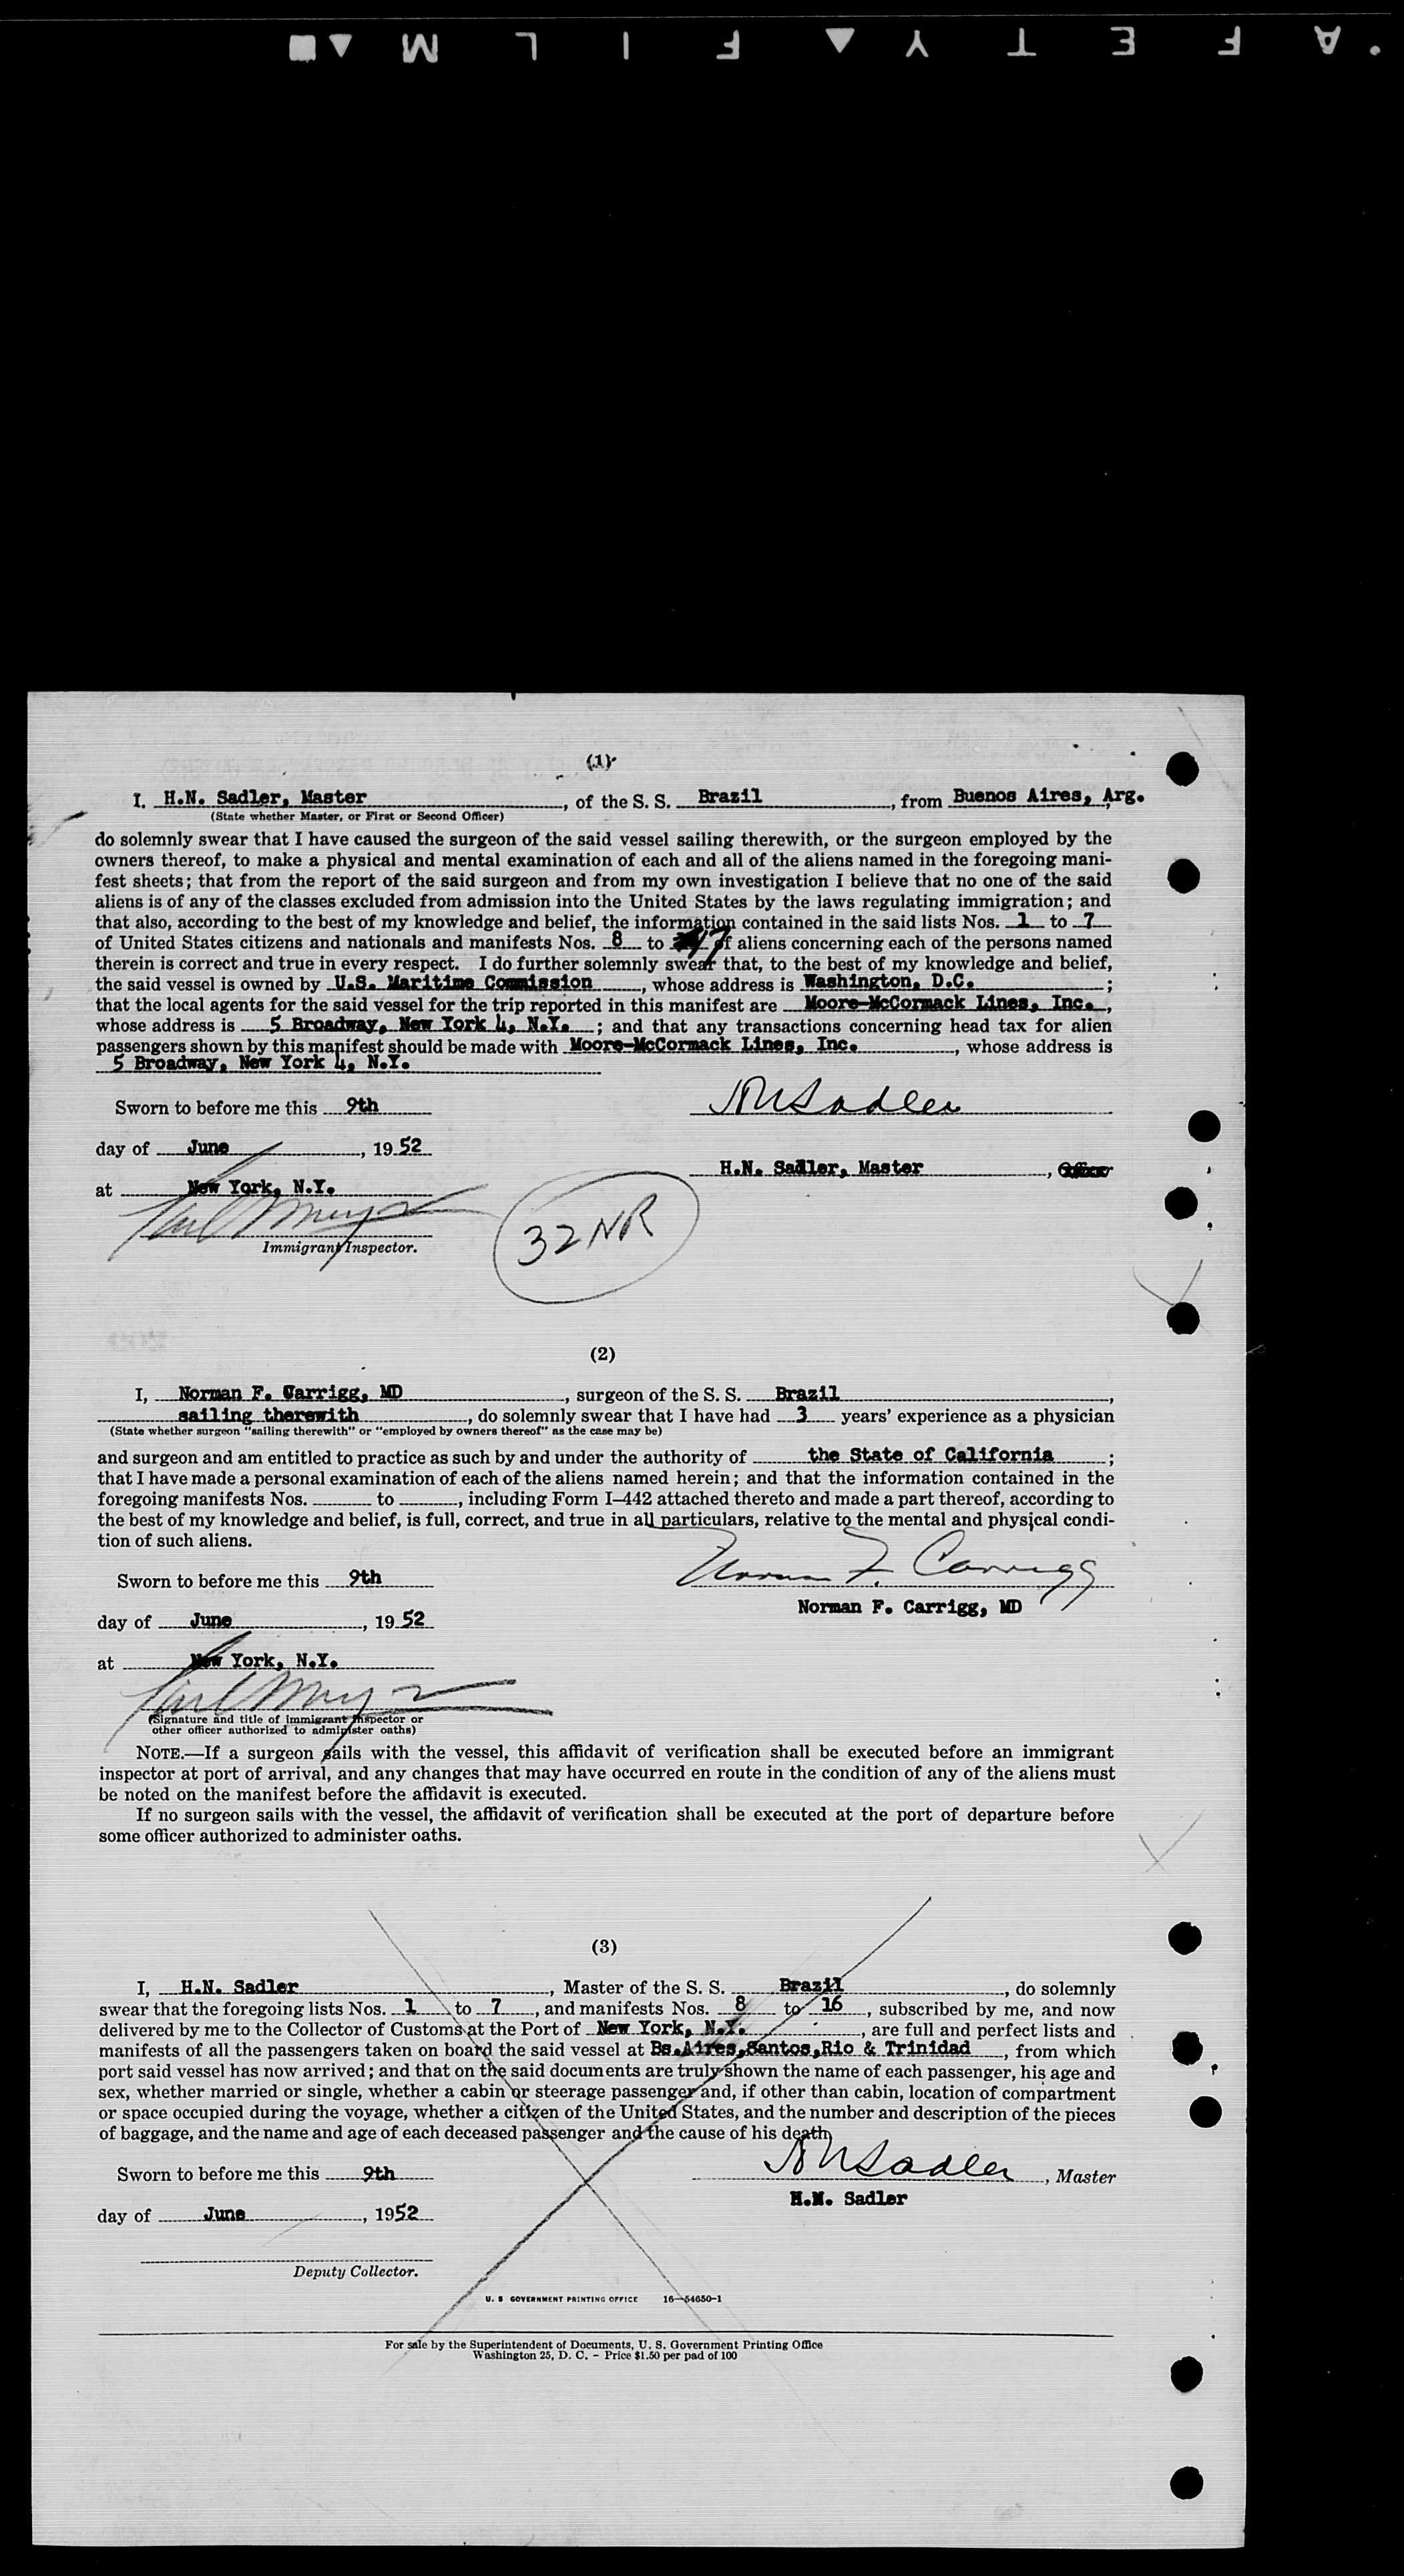 SAFETY FILM
(1)
I, H.N. Sadler, Master, of the S. S. Brazil, from Buenos Aires, Arg.
(State whether Master, or First or Second Officer)
do solemnly swear that I have caused the surgeon of the said vessel sailing therewith, or the surgeon employed by the
owners thereof, to make a physical and mental examination of each and all of the aliens named in the foregoing mani-
fest sheets; that from the report of the said surgeon and from my own investigation I believe that no one of the said
aliens is of any of the classes excluded from admission into the United States by the laws regulating immigration; and
that also, according to the best of my knowledge and belief, the information contained in the said lists Nos. 1 to 7
of United States citizens and nationals and manifests Nos. 8 to 17 of aliens concerning each of the persons named
therein is correct and true in every respect. I do further solemnly swear that, to the best of my knowledge and belief,
the said vessel is owned by U.S. Maritime Commission, whose address is Washington, D.C. ;
that the local agents for the said vessel for the trip reported in this manifest are Moore-McCormack Lines, Inc. ,
whose address is 5 Broadway, New York 4, N.Y. ; and that any transactions concerning head tax for alien
passengers shown by this manifest should be made with Moore-McCormack Lines, Inc. , whose address is
5 Broadway, New York 4, N.Y.
Sworn to before me this 9th
HNSadler
day of June, 1952
H.N. Sadler, Master,
at New York, N.Y.
Immigrant Inspector.
32 NR
(2)
I, Norman F. Carrigg, MD, surgeon of the S. S. Brazil,
sailing therewith, do solemnly swear that I have had 3 years' experience as a physician
(State whether surgeon "sailing therewith" or "employed by owners thereof" as the case may be)
and surgeon and am entitled to practice as such by and under the authority of the State of California ;
that I have made a personal examination of each of the aliens named herein; and that the information contained in the
foregoing manifests Nos. to , including Form I-442 attached thereto and made a part thereof, according to
the best of my knowledge and belief, is full, correct, and true in all particulars, relative to the mental and physical condi-
tion of such aliens.
Norman F. Carrigg
Sworn to before me this 9th
Norman F. Carrigg, MD
day of June, 1952
at New York, N.Y.
(Signature and title of immigrant inspector or
other officer authorized to administer oaths)
NOTE.—If a surgeon sails with the vessel, this affidavit of verification shall be executed before an immigrant
inspector at port of arrival, and any changes that may have occurred en route in the condition of any of the aliens must
be noted on the manifest before the affidavit is executed.
If no surgeon sails with the vessel, the affidavit of verification shall be executed at the port of departure before
some officer authorized to administer oaths.
(3)
I, H.N. Sadler, Master of the S. S. Brazil, do solemnly
swear that the foregoing lists Nos. 1 to 7, and manifests Nos. 8 to 16, subscribed by me, and now
delivered by me to the Collector of Customs at the Port of New York, N.Y. , are full and perfect lists and
manifests of all the passengers taken on board the said vessel at Bs.Aires,Santos,Rio & Trinidad, from which
port said vessel has now arrived; and that on the said documents are truly shown the name of each passenger, his age and
sex, whether married or single, whether a cabin or steerage passenger and, if other than cabin, location of compartment
or space occupied during the voyage, whether a citizen of the United States, and the number and description of the pieces
of baggage, and the name and age of each deceased passenger and the cause of his death.
Sworn to before me this 9th
HNSadler, Master
H.N. Sadler
day of June, 1952
Deputy Collector.
U. S GOVERNMENT PRINTING OFFICE 16—54650-1
For sale by the Superintendent of Documents, U. S. Government Printing Office
Washington 25, D. C. - Price $1.50 per pad of 100